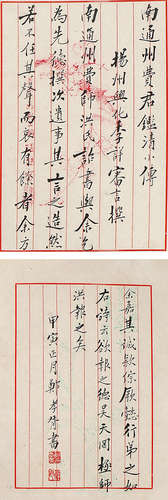 南通州費君鑑清小傳
揚州興化李詳審言撰
南通州費師洪氏詒書與余乞
為先德撰次遺事其言之造然
若不任其聲而哀有餘者余方
余嘉其誠款綜厥懿行弟之如
右詩云欲報之德昊天罔極師
洪報之矣
甲寅正月鄭孝胥書